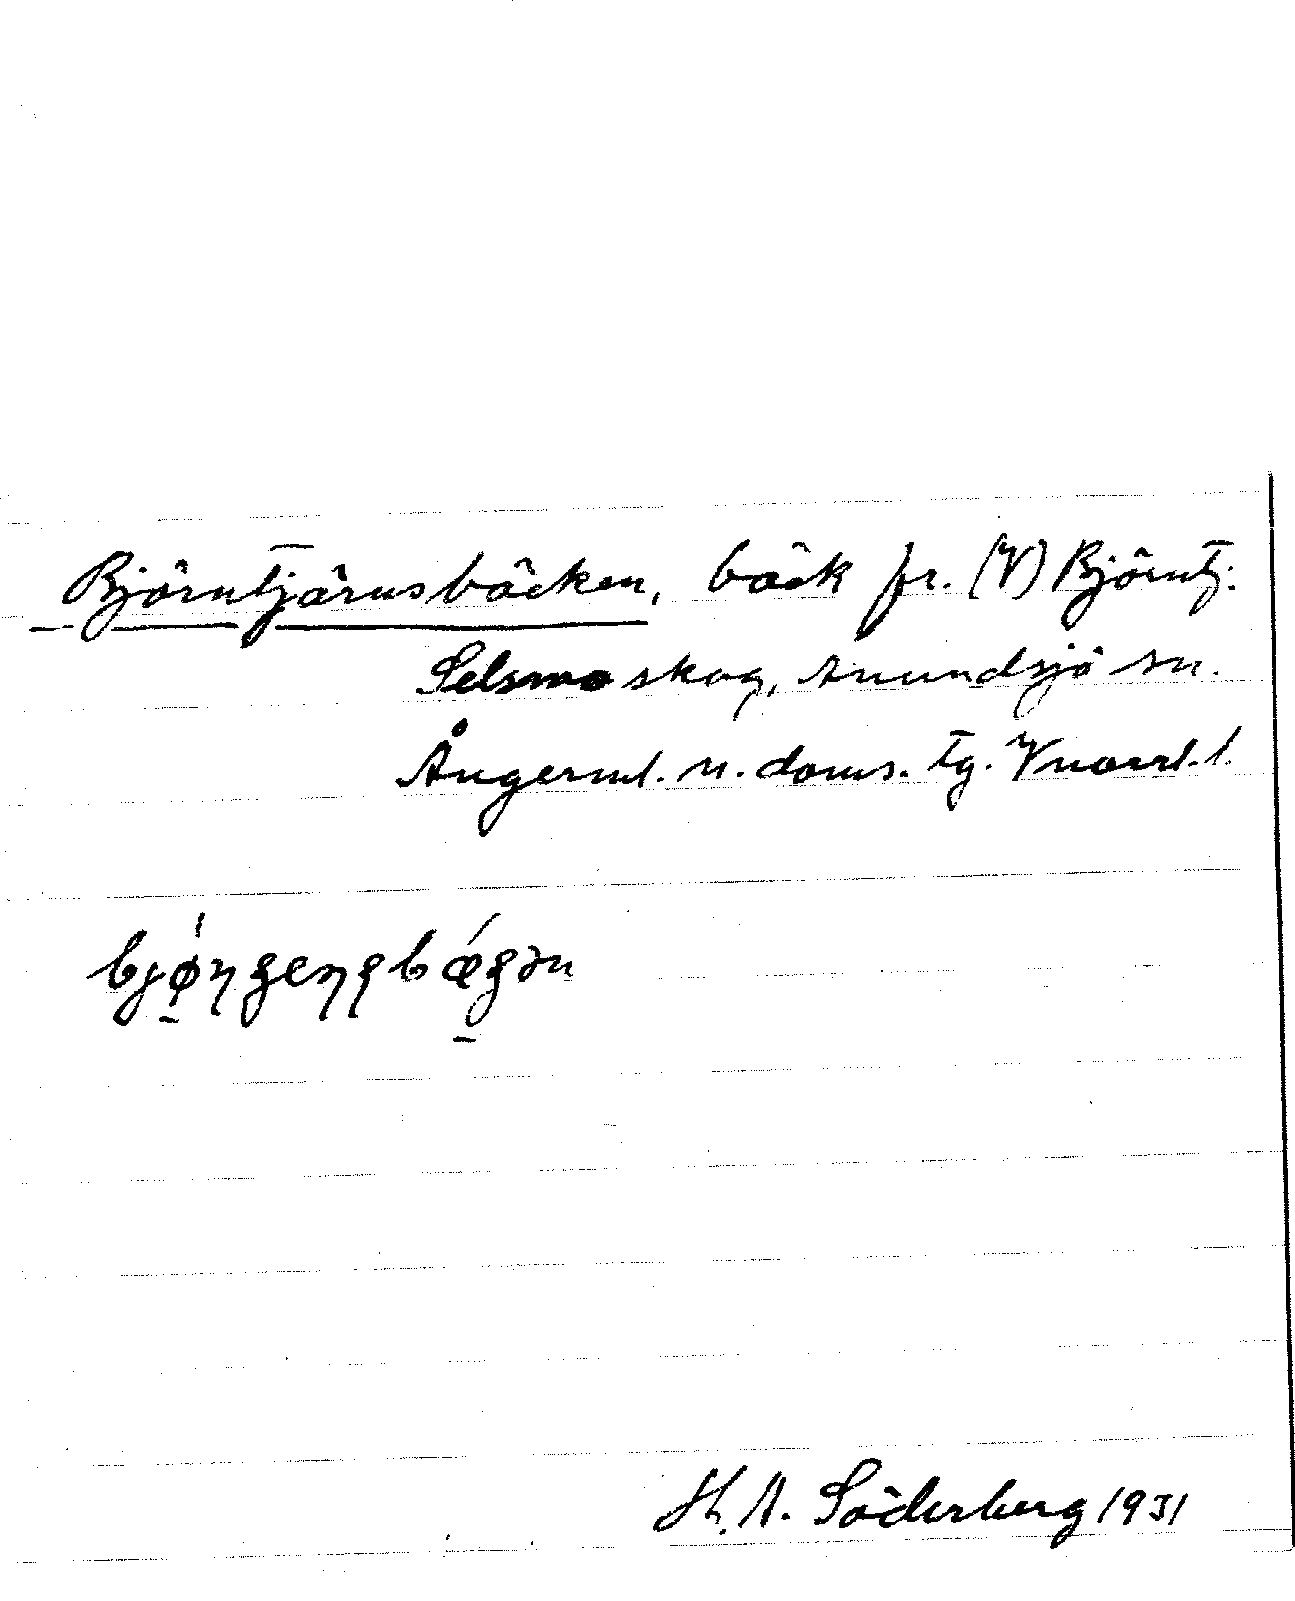 Björntjärnsbäcken, bäck fr. (V) Björntj.
Selsmo skog, Anundsjö sn.
Ångerml. n. doms. tg. Vnorrl. l.
Sth. A. Söderberg 1931